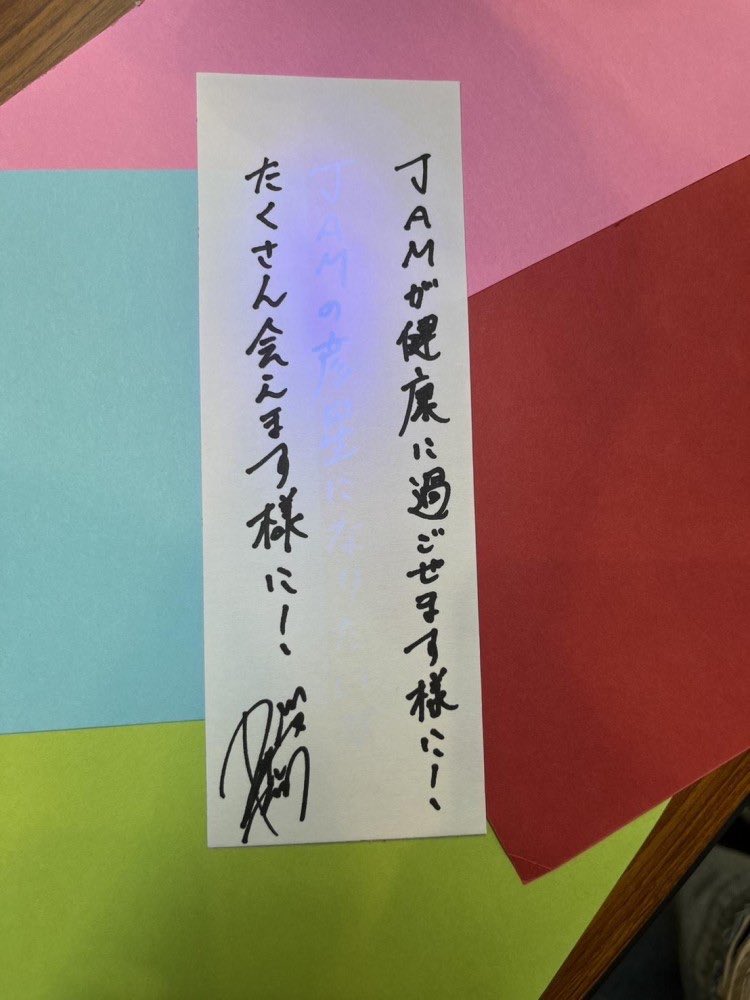 JAMが健康に過ごせます様に!
JAMの彦星になりたい
たくさん会えます様に!